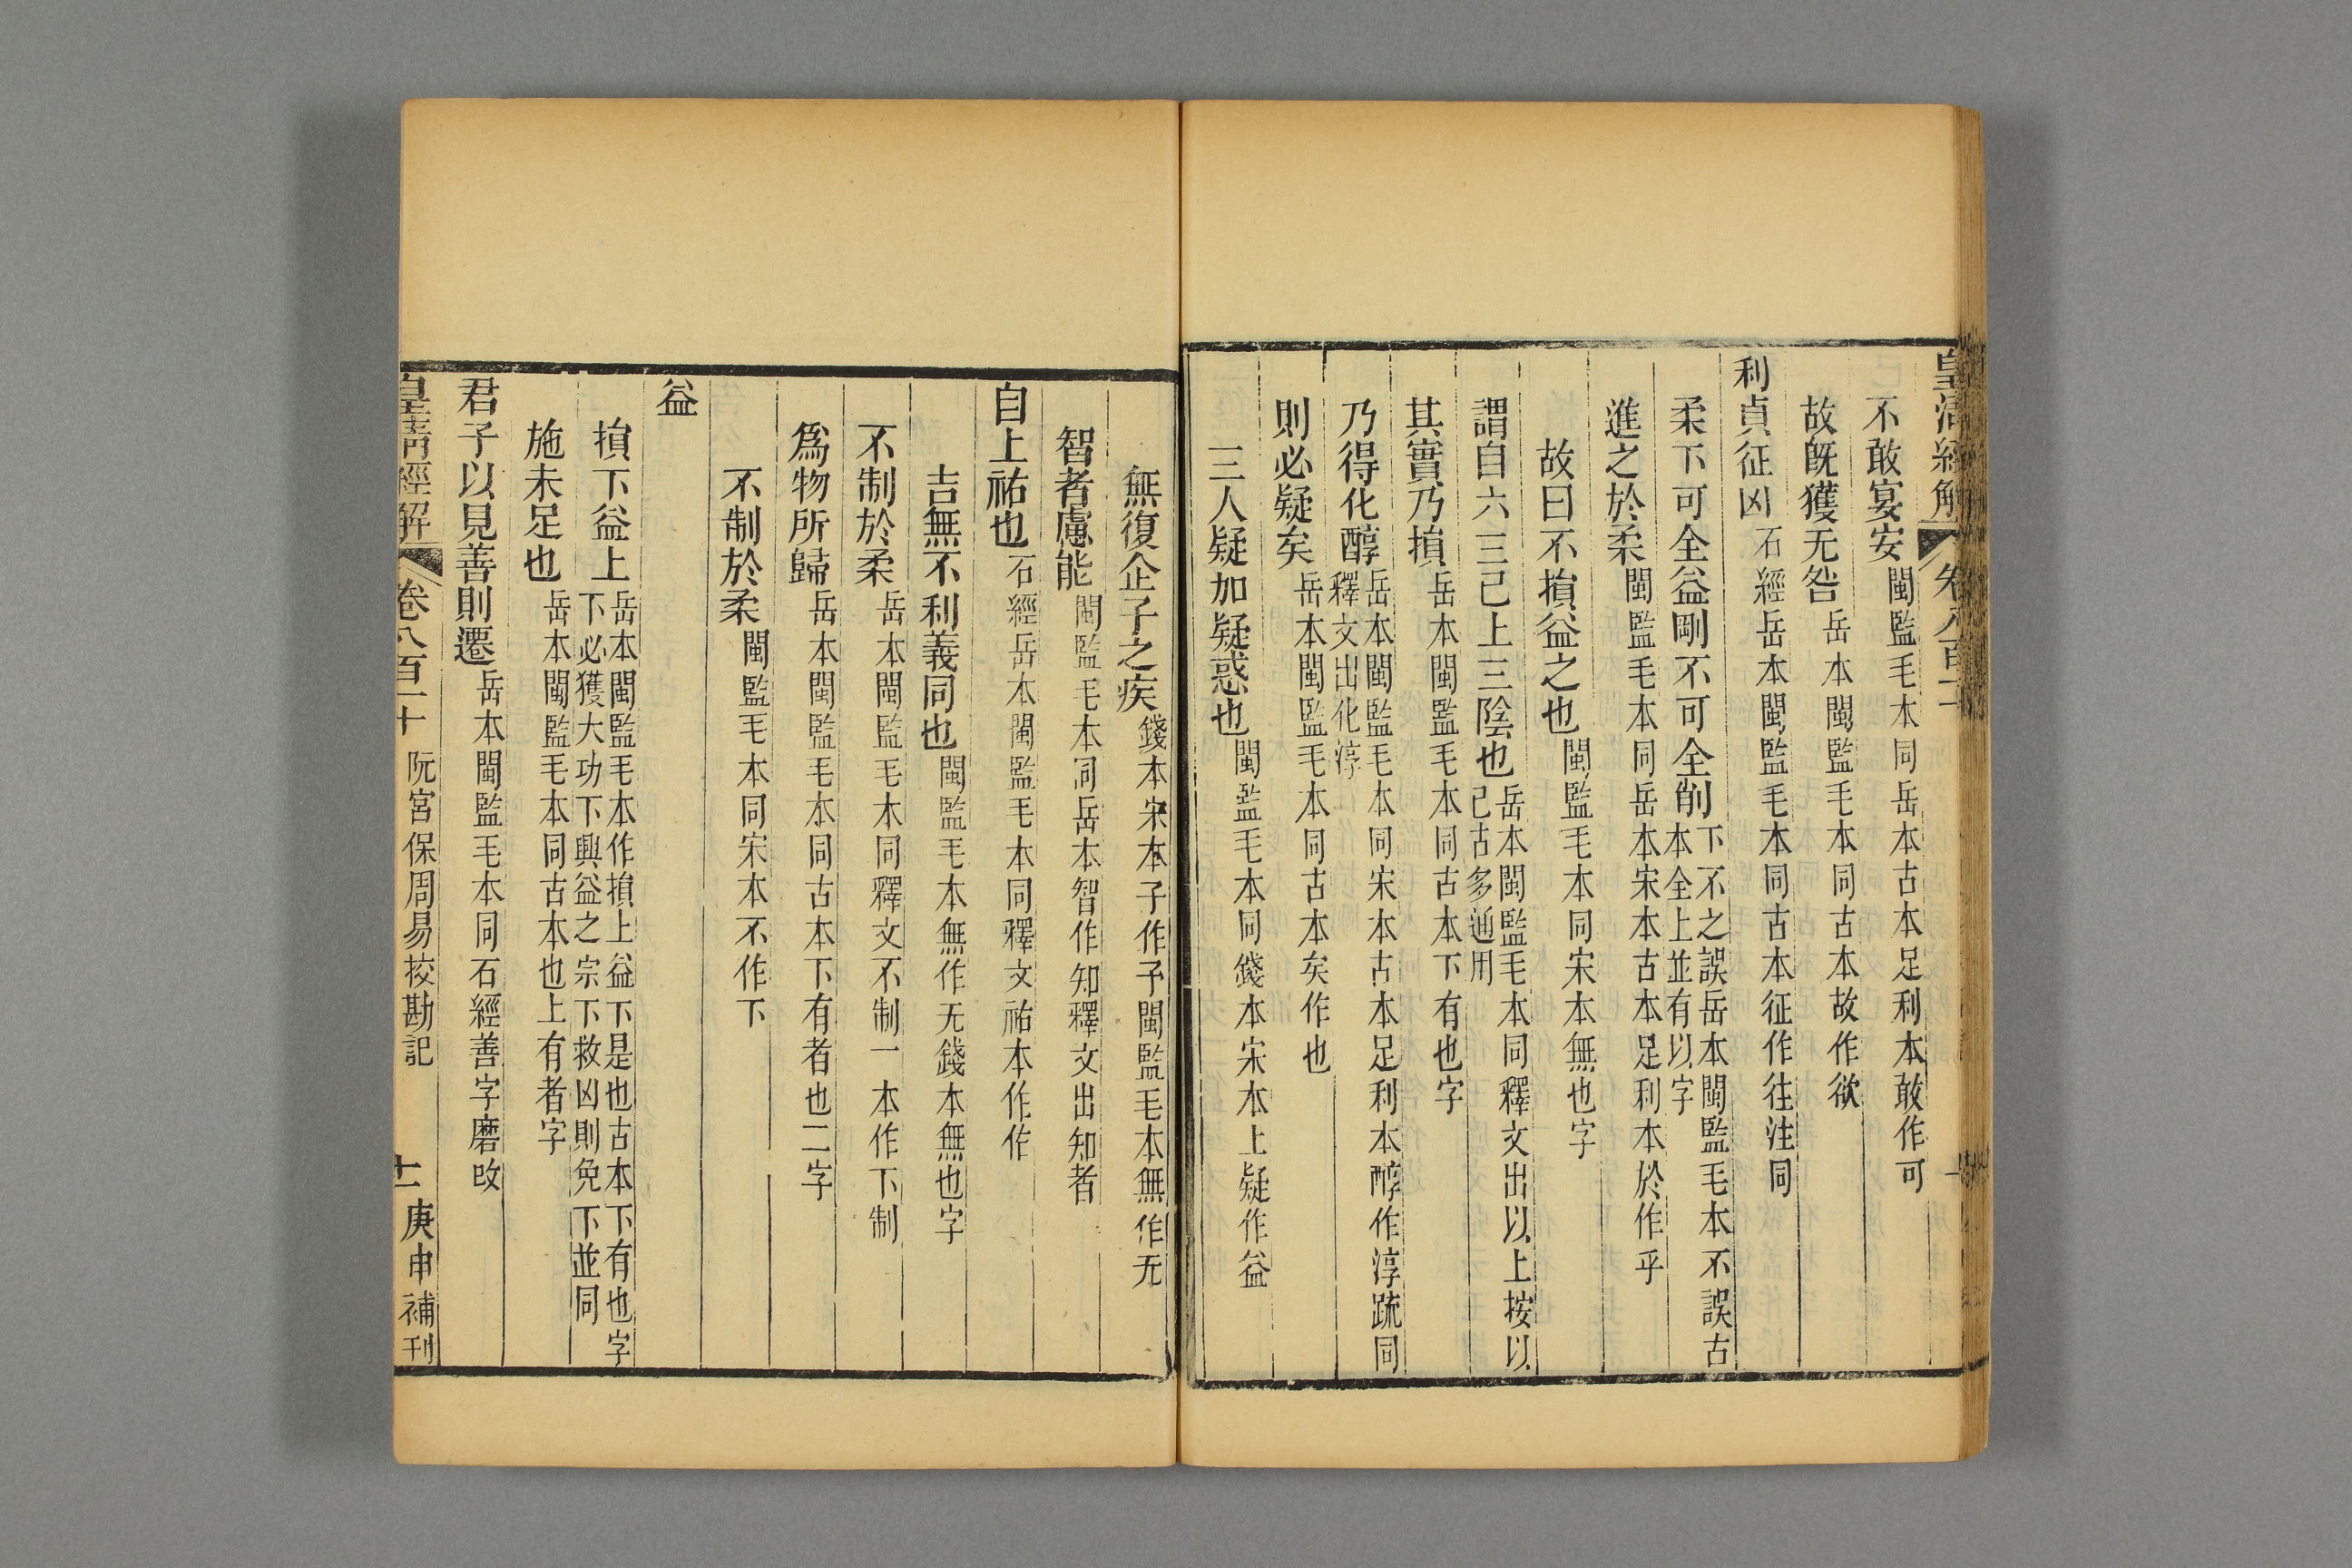 皇清經解
卷八百一十
不敢宴安閩監毛本同岳本古本足利本敢作可
故旣獲无咎岳本閩監毛本同古本故作欲
利貞征凶石經岳本閩監毛本同古本征作往注同
柔下可全益剛不可全削下不之誤岳本閩監毛本不誤古
本全上並有以字
進之於柔閩監毛本同岳本宋本古本足利本於作乎
故曰不損益之也閩監毛本同宋本無也字
謂自六三已上三陰也岳本閩監毛本同釋文出以上按以
已古多通用
其實乃損岳本閩監毛本同古本下有也字
乃得化醇岳本閩監毛本同宋本古本足利本醇作淳疏同
釋文出化淳
則必疑矣岳本閩監毛本同古本矣作也
三人疑加疑惑也閩監毛本同錢本宋本上疑作益
無復企子之疾錢本宋本子作予閩監毛本無作无
智者慮能閩監毛本同岳本智作知釋文出知者
自上祐也石經岳本閩監毛本同釋文祐本作佑
吉無不利義同也閩監毛本無作无錢本無也字
不制於柔岳本閩監毛本同釋文不制一本作下制
爲物所歸岳本閩監毛本同古本下有者也二字
不制於柔閩監毛本同宋本不作下
益
損下益上岳本閩監毛本作損上益下是也古本下有也字
下必獲大功下興益之宗下救凶則免下並同
施未足也岳本閩監毛本同古本也上有者字
君子以見善則遷岳本閩監毛本同石經善字磨改
皇清經解
卷八百一十
阮宮保周易挍勘記
十一
庚申補刊